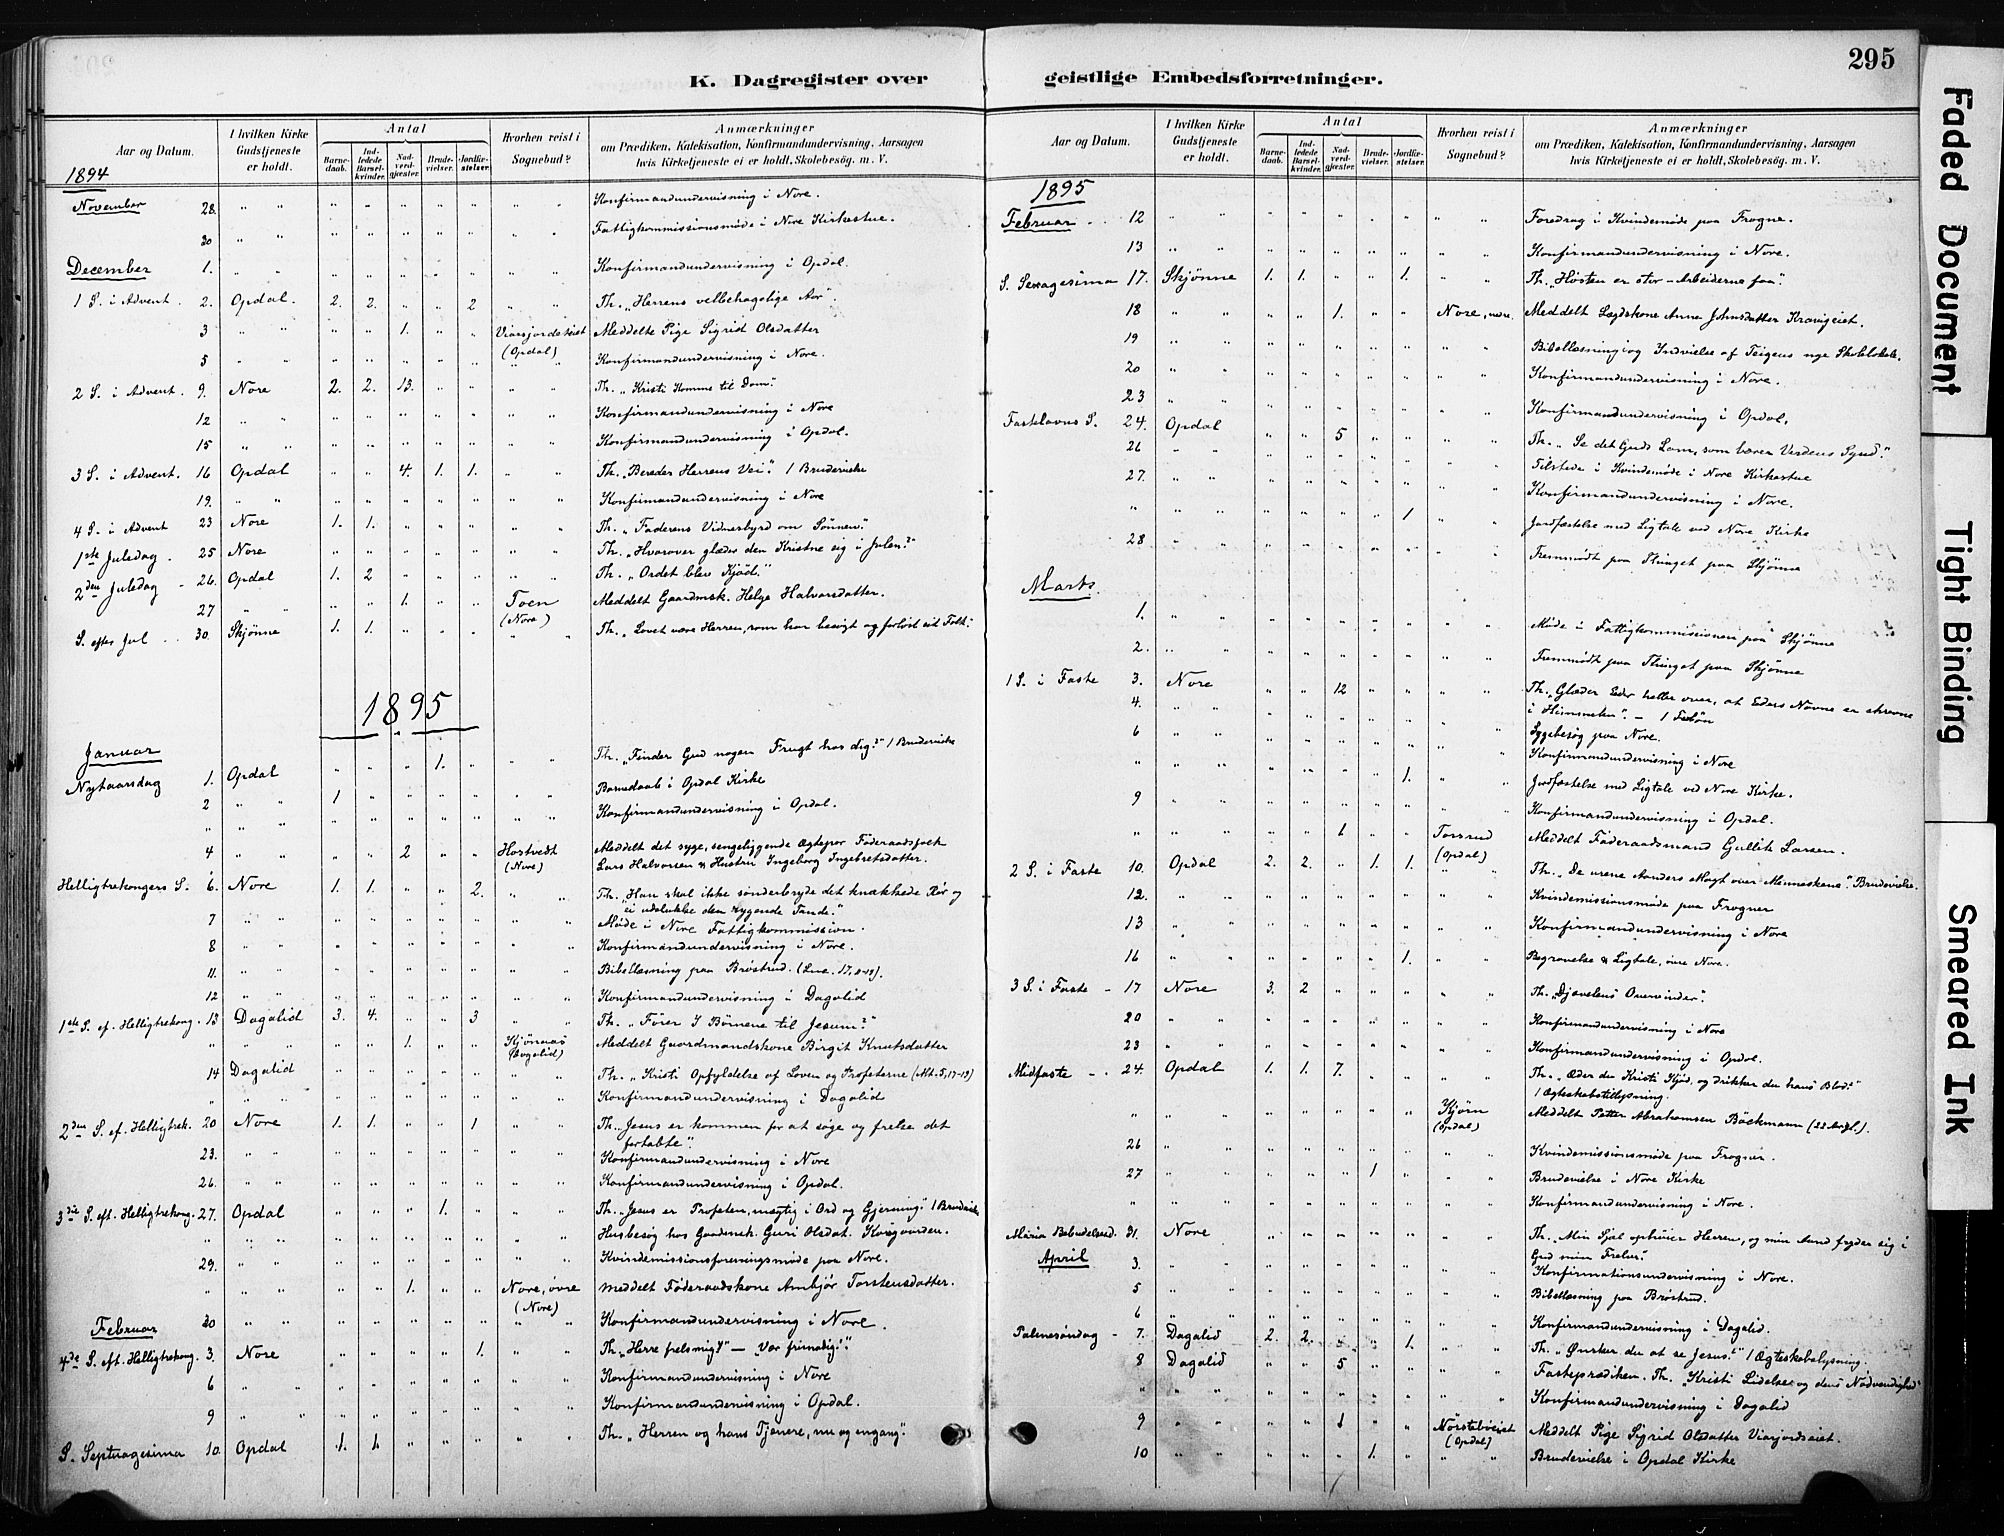 295
K. Dagregister over
geistlige Embedsforretninger.
Aar og Datum.
I hvilken Kirke Gudstjeneste er holdt.
Antal
Barnedaab.
Indledede Barselkvinder.
Nadverdgjæster.
Brudevielser.
Jordfæstelser.
Hvorhen reist i Sognebud?
Anmærkninger
om Prædiken, Katekisation, Konfirmandundervisning, Aarsagen
hvis Kirketjeneste ei er holdt, Skolebesøg. m. V.
1894
November 28. " " " " " " " " " Konfirmandundervisning i Nore.
30 " " " " " " " " " Fattigkommissionsmøde i Nore Kirkestue.
December 1. " " " " " " " " " Konfirmandundervisning i Opdal.
1 S. i Advent. 2. Opdal. 2. 2. " " 2 " " Th. „Herrens velbehagelige Aar".
3 " " " " 1. " " (Opdal) Meddelte Pige Sigrid Olsdatter
5 " " " " " " " " " Konfirmandundervisning i Nore.
2 S. i Advent. 9. Nore 2. 2. 13. " " " " Th. „Kristi Komme til Dom".
12 " " " " " " " " " Konfirmandundervisning i Nore
15 " " " " " " " " " Konfirmandundervisning i Opdal.
3 S. i Advent. 16 Opdal " " 4. 1. 1. " " Th. „Bereder Herrens Vei". 1 Brudevielse
19. " " " " " " " " " Konfirmandundervisning i Nore
4 S. i Advent 23 Nore 1. 1. " " " " " Th. „Faderens Vidnesbyrd om Sønnen".
1ste Juledag. 25 Nore " " " " " " " Th. „Hvorover glæder den Kristne sig i Julen?"
2den Juledag - 26. Opdal 1. 2 " " " " " Th. „Ordet blev Kjød."
27 " " " " 1. " " Toen (Nore) Meddelt Gaardmsk. Helge Halvorsdatter.
S. efter Jul . . 30. Skjønne 1. 1. " " " " " Th. „Lovet være Herren, som har besøgt og forløst sit Folk".
1895
Januar
Nytaarsdag 1. Opdal " " " 1. " " " Th. „Finder Gud nogen Frugt hos dig?" 1 Brudevielse
2 " " 1 " " " " " " Barnedaab i Opdal Kirke
" " " " " " " " " " Konfirmandundervisning i Opdal.
4 " " " " 2 " " Hostvedt (Nore) Meddelt det syge, sengeliggende Ægtepar Føderaadsfolk
Lars Halvorsen & Hustru Ingeborg Ingebretsdatter.
Helligtrekongers S. 6. Nore 1. 1. " " 2. " " Th. „Han skal ikke sønderbryde det knækkede Rør og
ei udslukke den rygende Tande."
7 " " " " " " " " " Møde i Nore Fattigkommission.
8 " " " " " " " " " Konfirmandundervisning i Nore.
11. " " " " " " " " " Bibellæsning paa Brøstrud. (Luc. 17,
12 " " " " " " " " " Konfirmandundervisning i Dagalid
1ste S. ef. Helligtrekong. 13 Dagalid 3. 4. " " 3 " " Th. „Fører I Børnene til Jesum?"
" " " " " 1. " " Kjønnaas (Dagalid) Meddelt Gaardmandskone Birgit Knutsdatter
14 Dagalid " " " " " " " Th. „Kristi Opfyldelse af Loven og Profeterne (Mt. 5, 17-19)
" " " " " " " " " " Konfirmandundervisning i Dagalid
2den S. ef. Helligtrek. 20 Nore 1. 1. " " 1 " " Th. „Jesus er kommen for at søge og frelse det
fortabte".
23. " " " " " " " " " Konfirmandundervisning i Nore
26. " " " " " " " " " Konfirmandundervisning i Opdal.
3die S. eft. Helligtrekong. 27. Opdal " " " 1. " " " Th. „Jesus er Profeten, mægtig i Ord og Gjerning." 1 Brudevielse
" " " " " " " " " " Husbesøg hos Gaadmsk. Guri Olsdat.
29. " " " " " " " " " Kvindemissionsforeningsmøde paa Nore.
" " " " " 1. " " Nore, øvre (Nore) Meddelt Føderaadskone Ambjør Torstensdatter.
30 " " " " " " " " " Konfirmandundervisning i Nore.
Februar
4de S. eft. Helligtrekong. 3. Nore " " " " 1. " " Th. „Herre frels mig!" — Vær frimodig!".
6 " " " " " " " " " Konfirmandundervisning i Nore
9 " " " " " " " " " Konfirmandundervisning i Opdal.
S. Septuagesima 10. Opdal 1. 1. " " " " " Th. „Herren og hans Tjenere, nu og engang".
Aar og Datum.
I hvilken Kirke Gudstjeneste er holdt.
Antal
Barnedaab.
Indledede Barselkvinder.
Nadverdgjæster.
Brudevielser.
Jordfæstelser.
Hvorhen reist i Sognebud?
Anmærkninger
om Prædiken, Katekisation, Konfirmandundervisning, Aarsagen
hvis Kirketjeneste ei er holdt, Skolebesøg. m. V.
1895
Februar . . 12 " " " " " " " " " Foredrag i Kvindemøde paa Frogne.
13 " " " " " " " " " Konfirmandundervisning i Nore.
S. Sexagesima 17. Skjønne 1. 1. " " 1. " " Th. „Høsten er stor - Arbeiderne faa".
18 " " " " 1. " " Nore, nedre. Meddelt Lægdskone Anne Johnsdatter Kravigeiet.
19 " " " " " " " " " Bibellæsning og Indvielse af Teigens nye Skolelokale.
20 " " " " " " " " " Konfirmandundervisning i Nore.
23 " " " " " " " " " Konfirmandundervisning i Opdal.
Fastelavns S. 24. Opdal " " 5 " " " " Th. „Se det Guds Lam, som bærer Verdens Synd".
26 " " " " " " " " " Tilstede i Kvindemøde i Nore Kirkestue
27. " " " " " " " " " Konfirmandundervisning i Nore.
" " " " " " " 1 " " Jordfæstelse med Ligtale ved Nore Kirke
28 " " " " " " " " " Fremmødt paa Thinget paa Skjønne
Marts.
1. " " " " " " " " " Møde i Fattigkommissionen paa Skjønne
2. " " " " " " " " " Fremmødt paa Thinget paa Skjønne
1 S. i Faste 3. Nore " " 12 " " " " Th. „Glæder Eder heller over, at Eders Navne er skrevne
i Himmelen". -
4. " " " " " " " " " Sygebesøg paa Nore.
6 " " " " " " " " " Konfirmandundervisning i Nore
" " " " " " " 1. " " Jordfæstelse med Ligtale ved Nore Kirke.
9 " " " " " " " " " Konfirmandundervisning i Opdal.
" " " " " 1 " " Torsrud (Opdal) Meddelt Føderaadsmand Gullik Larsen.
2 S. i Faste 10. Opdal 2. 2. " 1. 1. " " Th. „De urene Aanders Magt over Menneskene". Brudevielse.
12. " " " " " " " " " Kvindemissionsmøde paa Frogner
13 " " " " " " " " " Konfirmandundervisning i Nore
16 " " " " " " 1. " " Begravelse & Ligtale, øvre Nore.
3 S. i Faste - 17 Nore 3. 2 " " " " " Th. „Djævelens Overvinder".
20 " " " " " " " " " Konfirmandundervisning i Nore
23 " " " " " " " " " Konfirmandundervisning i Opdal.
Midfaste - . 24. Opdal 1. 1. 7. " " " " Th. „Æder du Kristi Kjød, og drikker du hans Blod?"
1 Ægteskabstillysning.
" " " " " " " " Kjørn (Opdal) Meddelt Petter Abrahamsen Böckmann
26 " " " " " " " " " Kvindemissionsmøde paa Frogner.
27 " " " " " 1 " " " Brudevielse i Nore Kirke
" " " " " " " " " " Konfirmandundervisning i Nore.
Maria Bebudelsesd. 31. Nore " " " " " " " Th. „Min Sjæl ophøier Herren, og min Aand fryder sig i
Gud min Frelser".
April 3. " " " " " " " " " Konfirmationsundervisning i Nore.
5 " " " " " " " " " Bibellæsning paa Brøstrud.
6 " " " " " " " " " Konfirmandundervisning i Dagalid.
Palmesøndag - 7. Dagalid 2. 2. " " 1. " " Th. „Ønsker du at se Jesus?" 1 Ægteskabslysning.
8 Dagalid " " 5 " " " " Fasteprædiken. Th. „Kristi Lidelse og dens Nødvendighed"
" " " " " " " " " " Konfirmandundervisning i Dagalid
9 " " " " 1 " " Nørstebøeiet (Opdal) Meddelt Pige Sigrid Olsdatter Viorjordseiet.
10 " " " " " 1. " " " Brudevielse i Opdal Kirke
Faded Document
Tight Binding
Smeared Ink